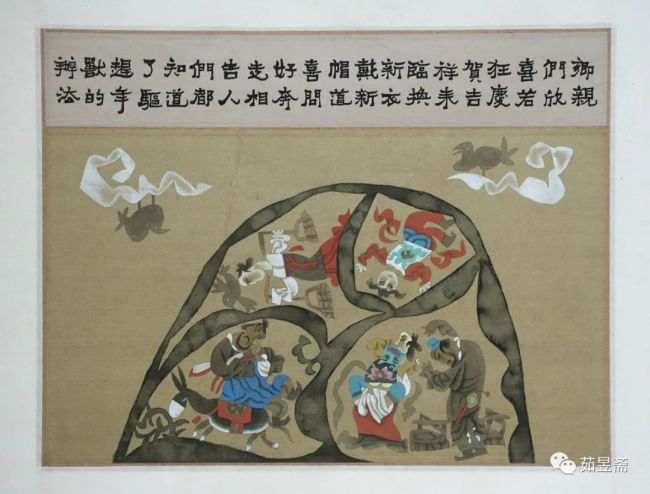 鄉親
們欣
喜若
狂慶
賀吉
祥来
臨換
新衣
戴新
帽道
喜問
好奔
走相
告人
們都
知道
了驅
趕年
獸的
辦法
茹昱斋